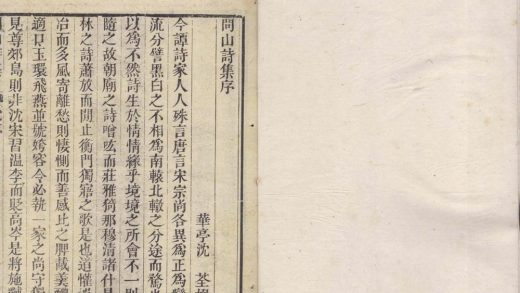 問山詩集序
華亭沈 荃
今譚詩家人人殊言唐言宋宗尚各異爲正爲
流分譬黑白之不相爲南轅北轍之分途而騖
以爲不然詩生於情情緣乎境境之所會不一則
隨之故朝廟之詩噌吰而莊雅猗那穆清諸什是
林之詩蕭放而閒止衡門獨寤之歌是也懽
冶而多風寄離愁則悽惻而善感此之脾蕺美
適口玉環飛燕並號姱容今必執一家之尚守
見尊郊島則非沈宋習温李而貶高岑是將施